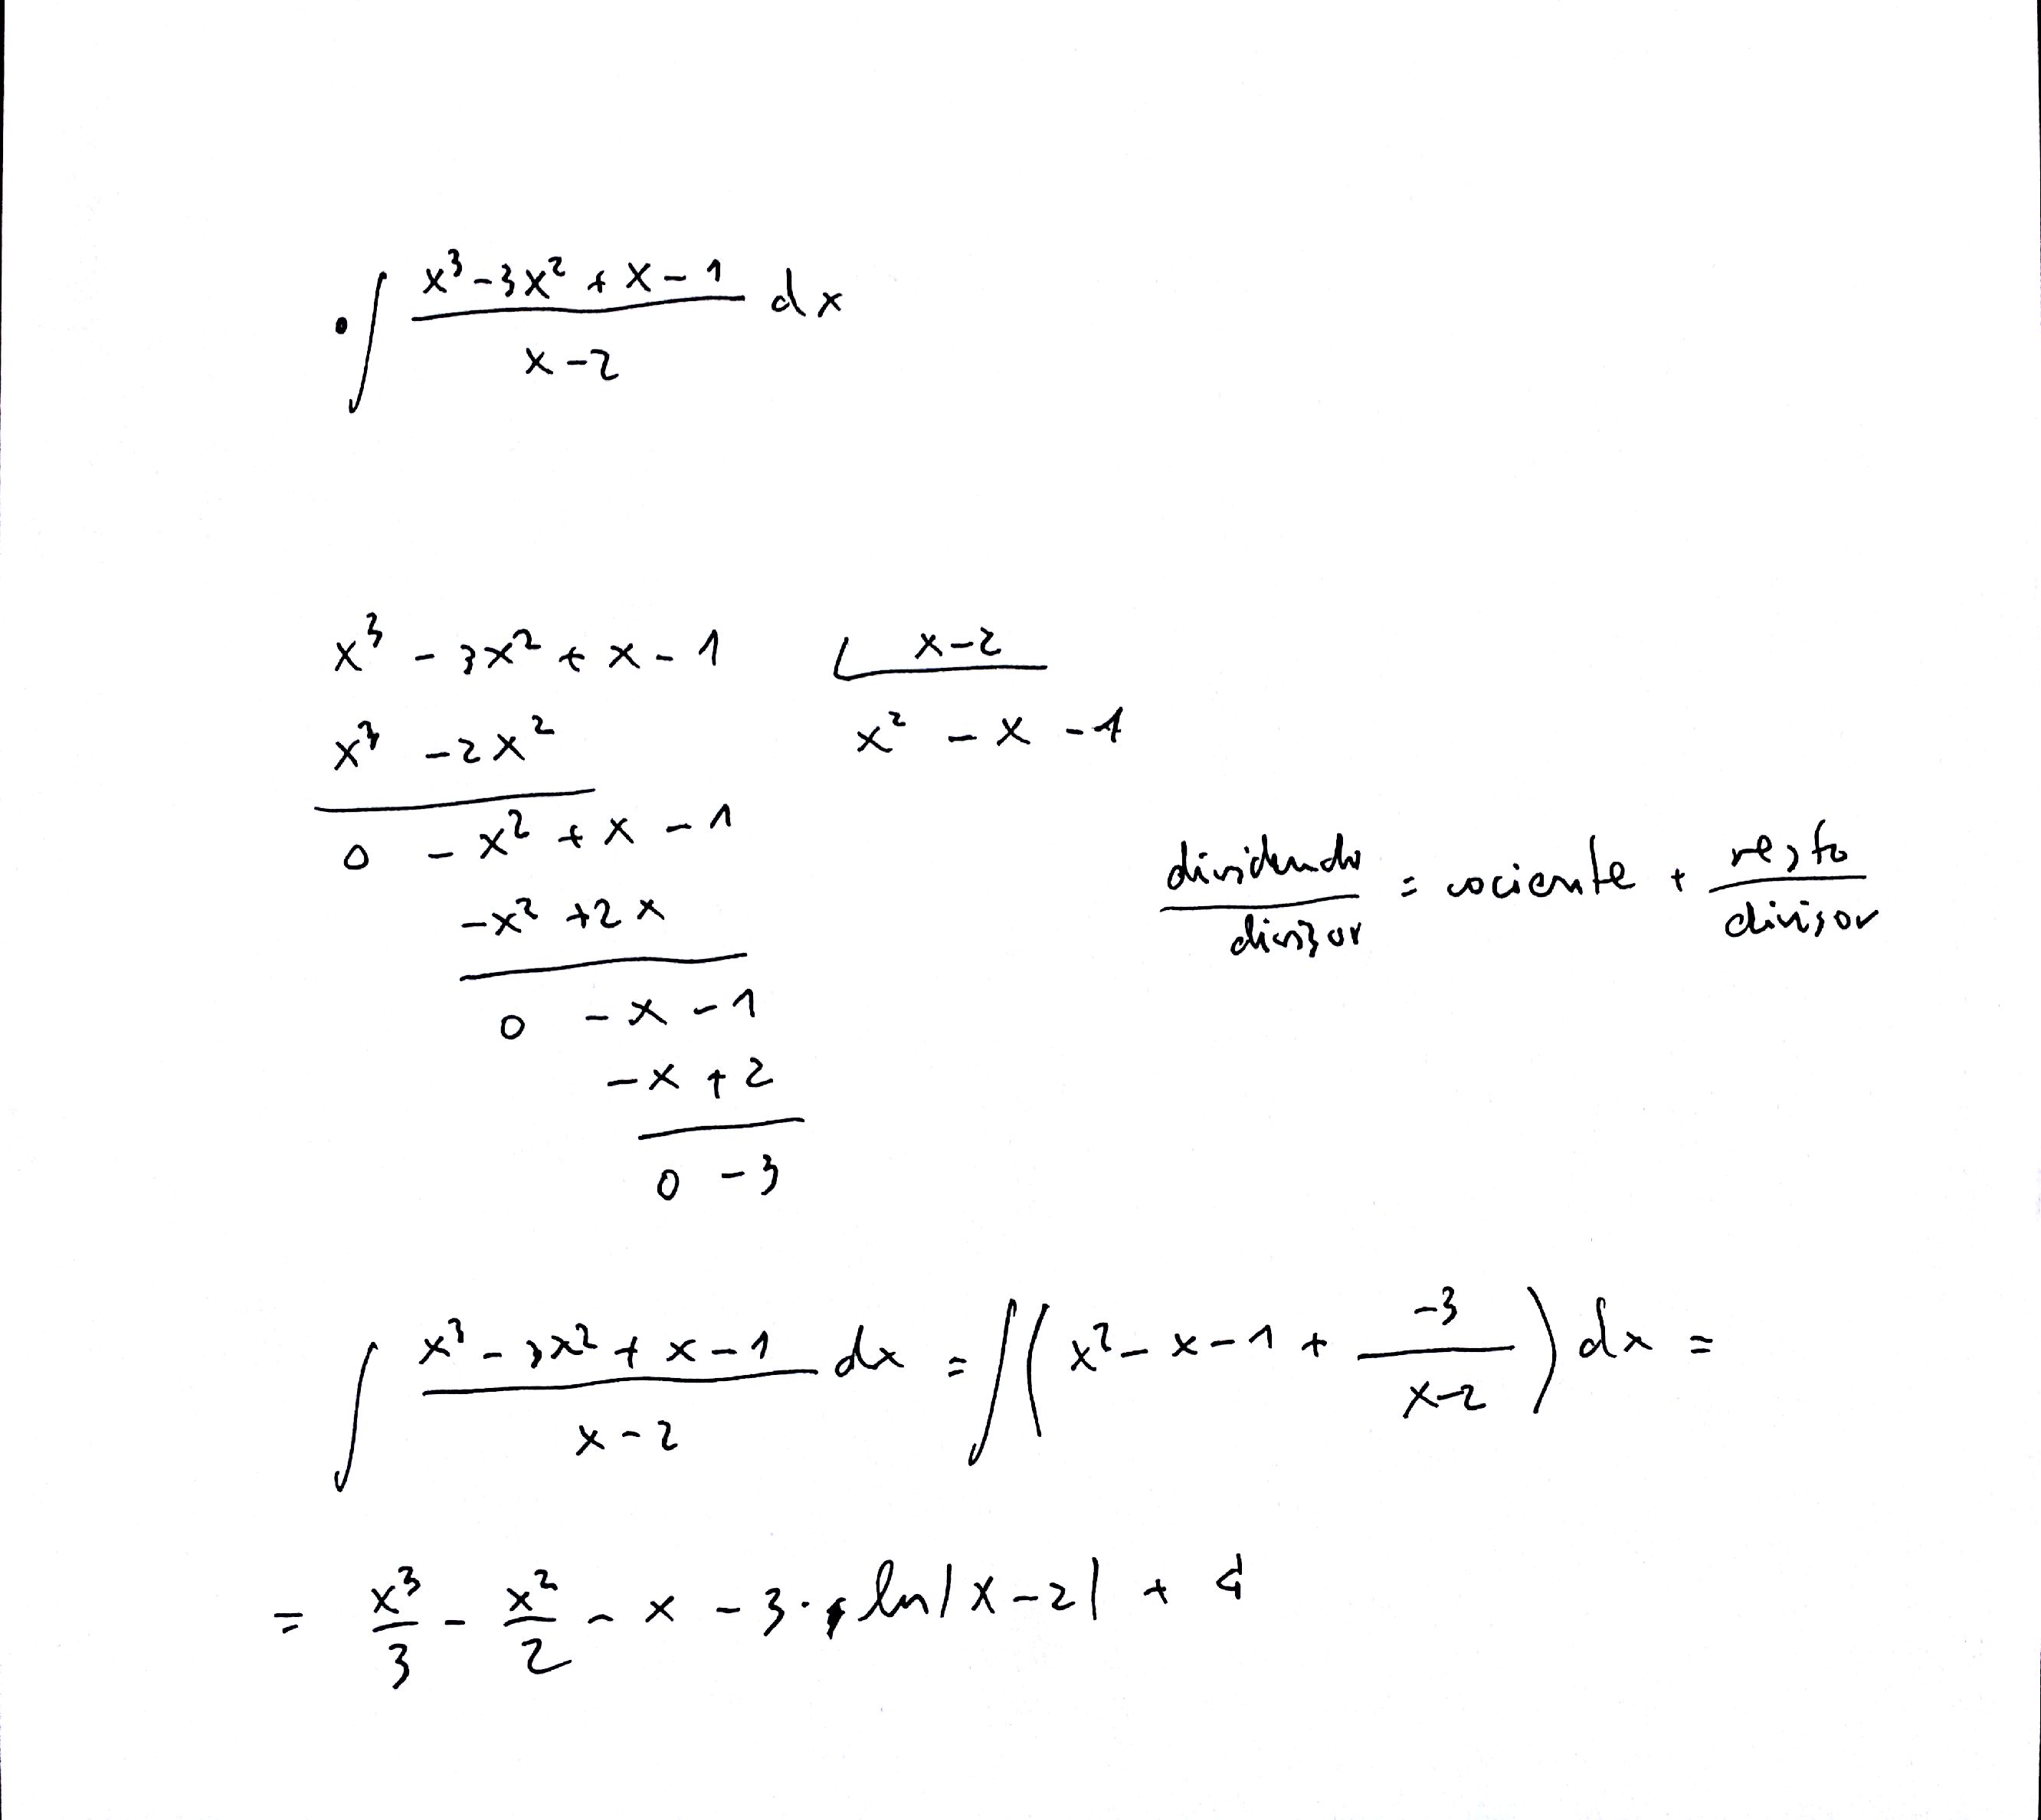 • ∫ (x³ - 3x² + x - 1)/(x - 2) dx
x³ - 3x² + x - 1 ∟ x - 2
x³ - 2x² x² - x - 1
0 - x² + x - 1
- x² + 2x
0 - x - 1
- x + 2
0 - 3
dividendo/divisor = cociente + resto/divisor
∫ (x³ - 3x² + x - 1)/(x - 2) dx = ∫ (x² - x - 1 + (-3)/(x - 2)) dx =
= x³/3 - x²/2 - x - 3 · ln|x - 2| +